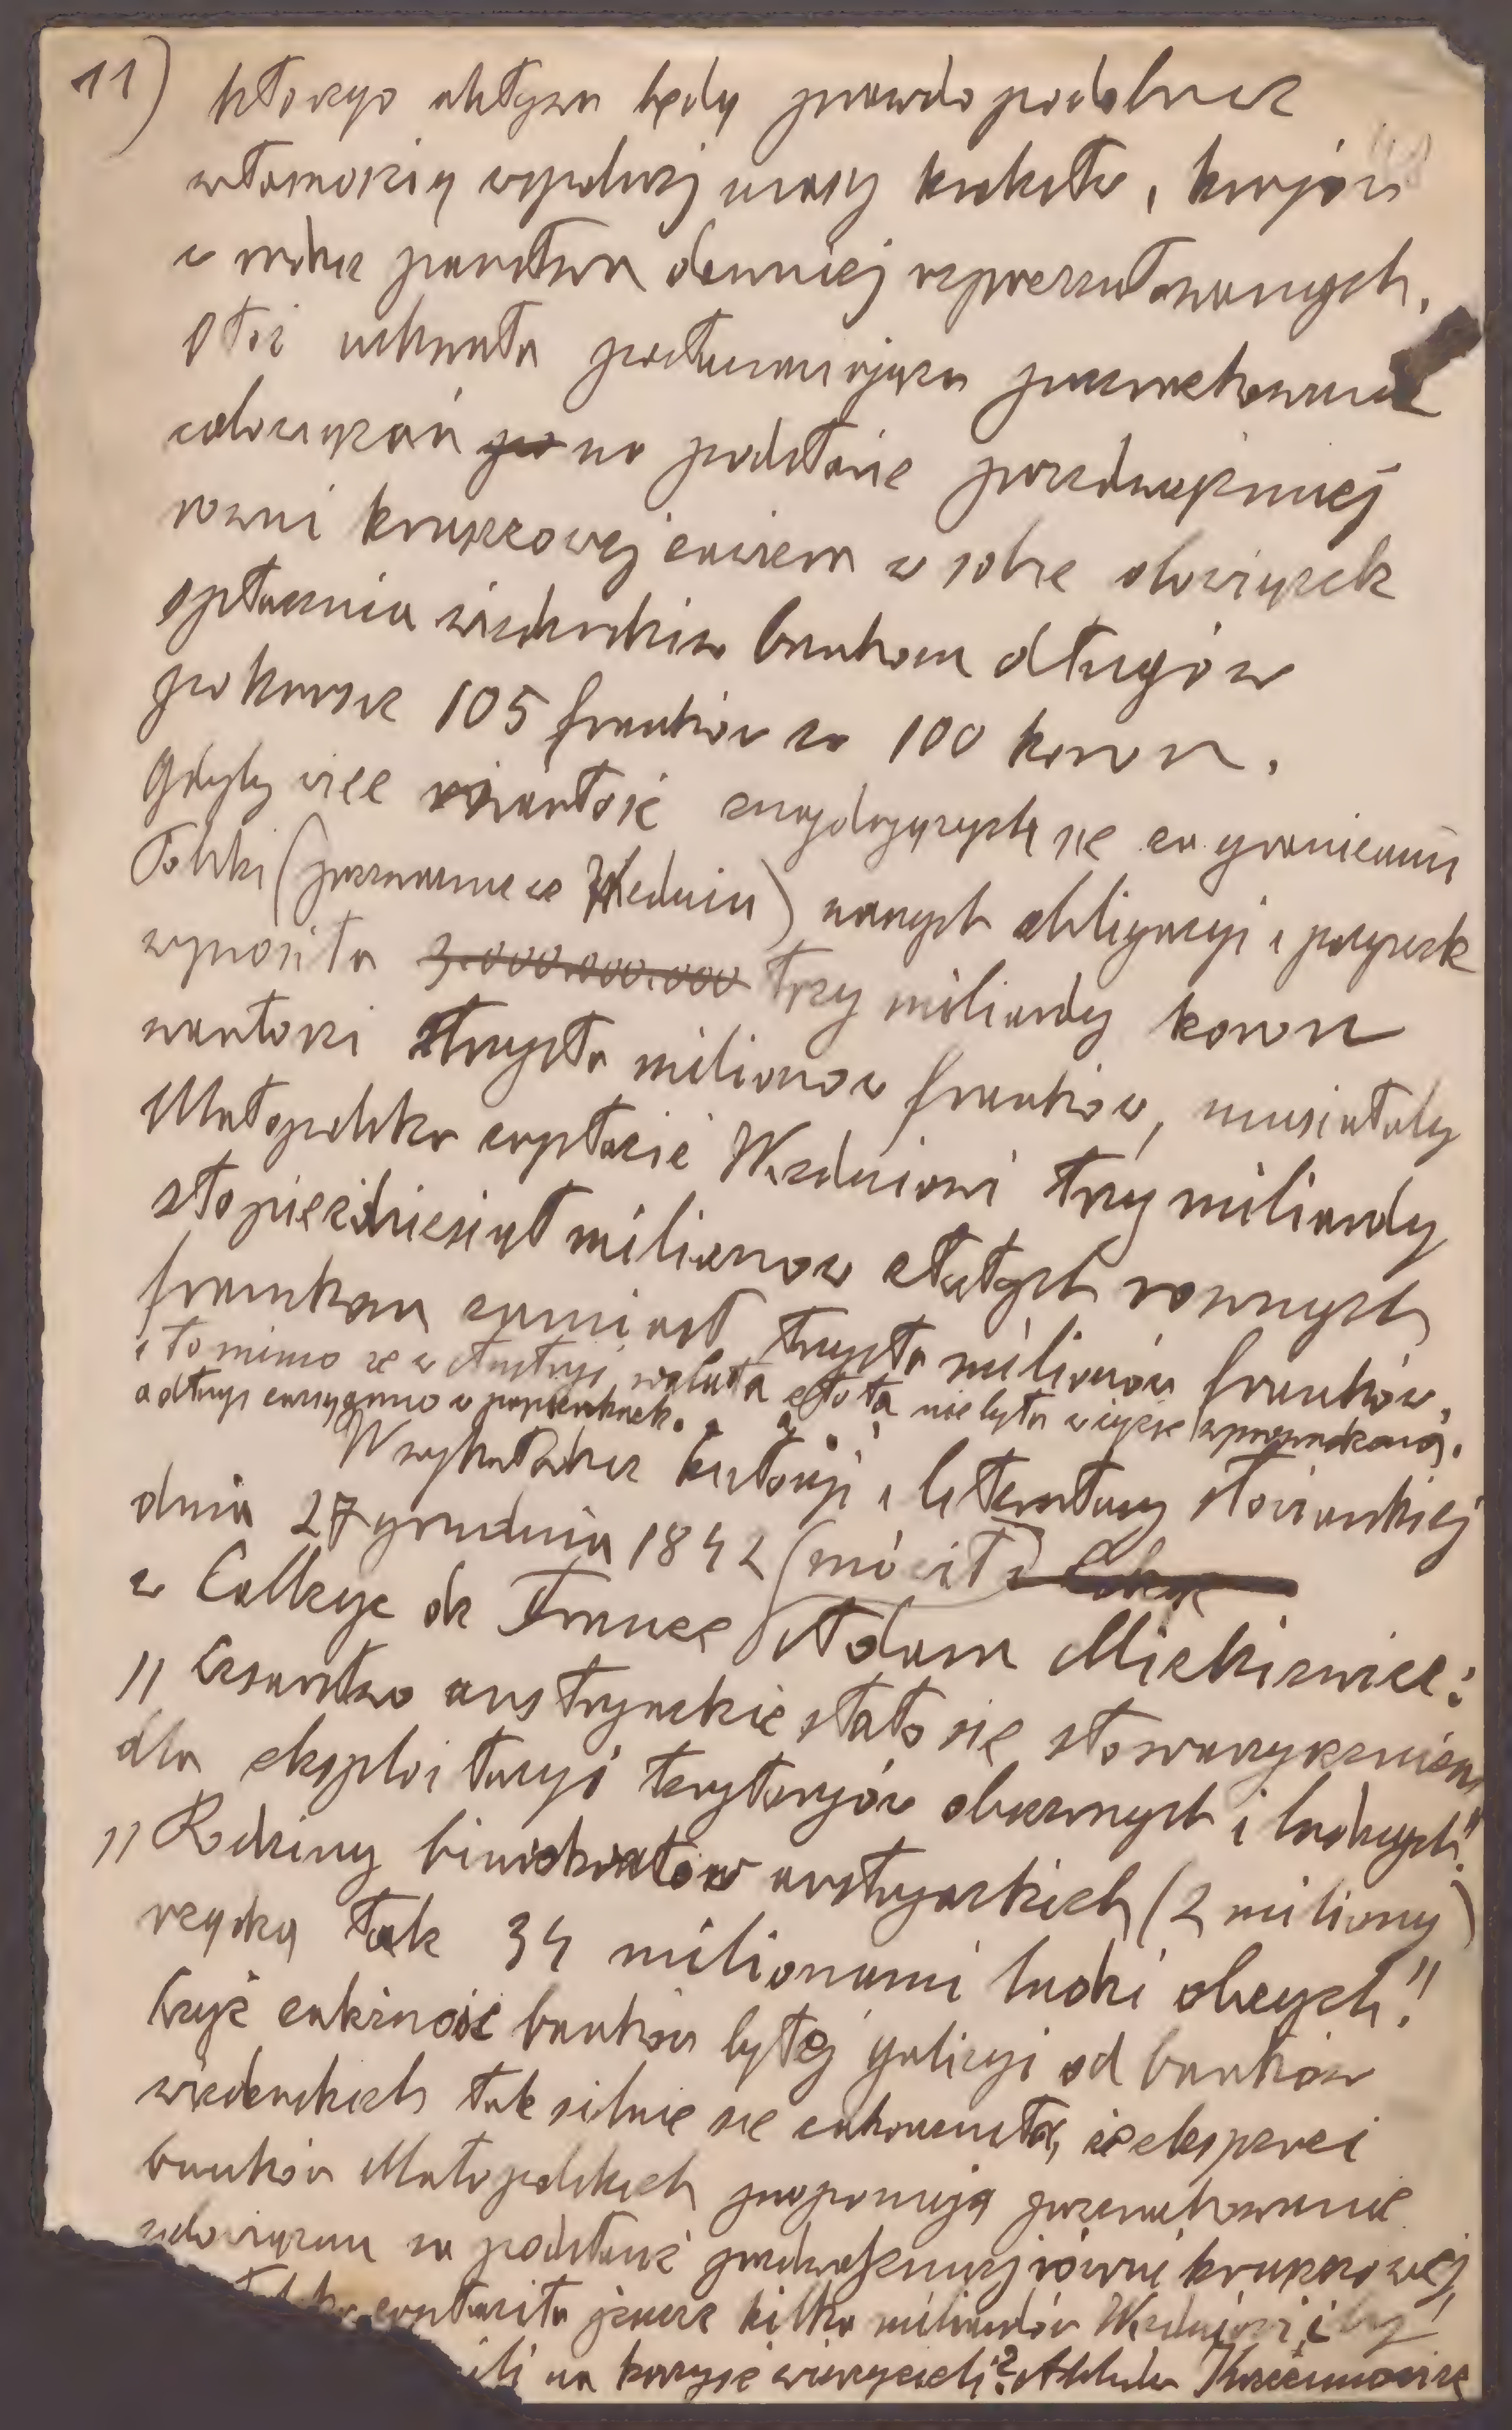 11) którego aktywa będą prawdopodobnie
własnością wspólnej masy krakotw, krajów
w radzie państwa dawniej reprezentowanych.
Otóż uchwała postanawiająca przerachowanie
zobowiązań na podstawie przedwojennej
równi kruszcowej zawiera w sobie obowiązek
spłacenia wiedeńskim bankom długów
po kursie 105 franków za 100 koron.
Gdyby więc wartość znajdujących się za granicami
Polski (przeważnie w Wiedniu) naszych obligacyi i pożyczek
wynosiła 3.000.000.000 trzy miliardy koron
wartości trzysta milionów franków, musiałaby
Małopolska zapłacić Wiedniowi trzy miliardy
stopięćdziesiąt milionów złotych równych
frankom zamiast trzysta milionów franków,
i to mimo że w Austryi waluta złota nie była w życie wprowadzona,
a długi zaciągano w papierkach.
W wykładzie historyi i literatury słowiańskiej
dnia 27 grudnia 1842 (mówił)
w Collége de France Adam Mickiewicz:
"Cesarstwo austryackie stało się stowarzyszeniem
dla eksploitacyi terytoryów obszernych i ludnych".
"Rodziny biurokratów austryackich (2 miliony)
rządzą tak 34 milionami ludzi obcych!"
Czyż zależność banków byłej Galicyi od banków
wiedeńskich tak silnie się zakorzeniła, że eksperci
banków Małopolskich proponują przerachowanie
zobowiązań na podstawie przedwojennej równi kruszcowej,
zapłaciła jeszcze kilka miliardów Wiedniowi i by
ili na korzyść wierzycieli?